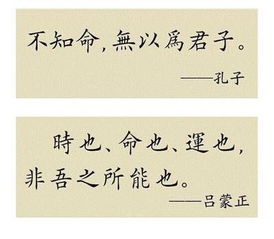 不知命,無以爲君子。
——孔子
時也、命也、運也,
非吾之所能也。
——吕蒙正